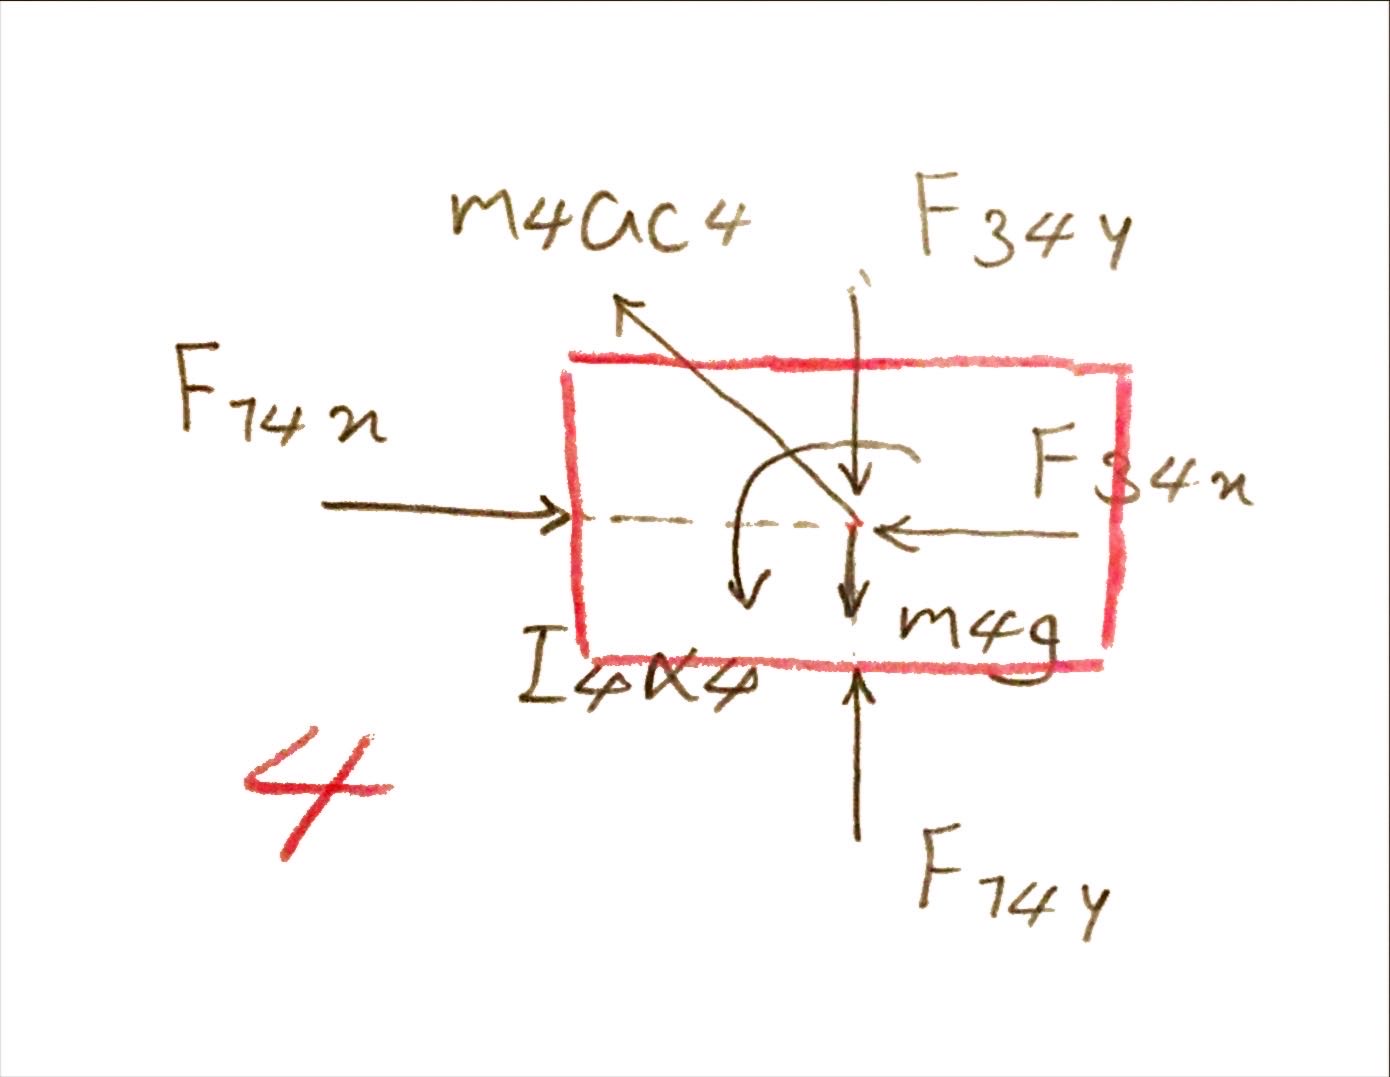 m4ac4
F34y
F14x
F34x
m4g
I4α4
4
F14y